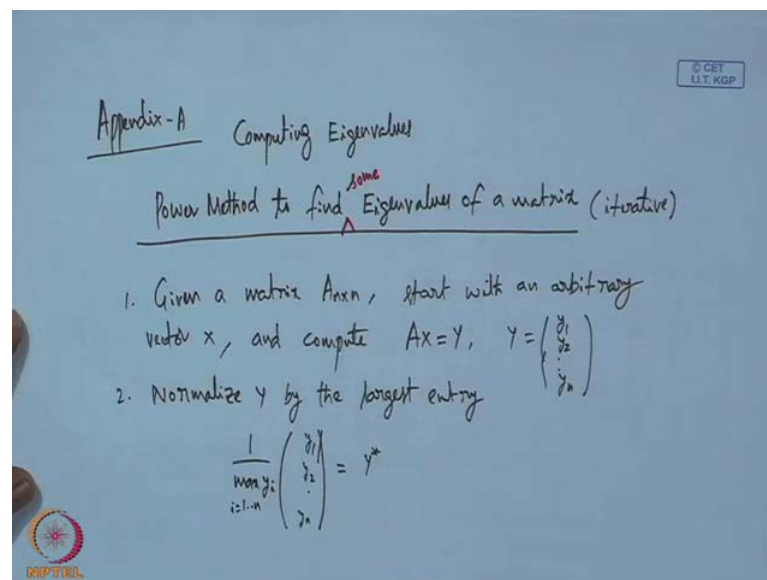 © CET
I.I.T. KGP
Appendix-A Computing Eigenvalues
some
Power Method to find ∧ Eigenvalues of a matrix (iterative)
1. Given a matrix Anxn, start with an arbitrary
vector x, and compute Ax = Y, Y = (y1 y2 : yn)
2. Normalize Y by the largest entry
1/max yi i=1..n (y1 y2 . yn) = Y*
NPTEL